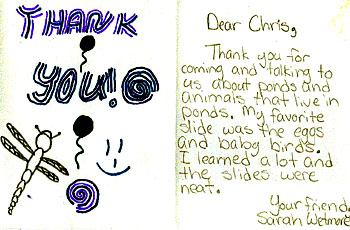 THANK
YOU!
Dear Chris,
Thank you for
coming and talking to
us about ponds and
animals that live in
ponds. My favorite
slide was the eggs
and baby birds.
I learned a lot and
the slides were
neat.
Your friend,
Sarah Wetmore